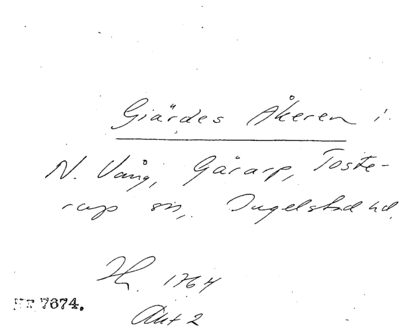 Giärdes Åkeren i
N. Vång, Gårarp, Toste-
rup sn, Ingelstad hd.
1764
Akt 2
7674.